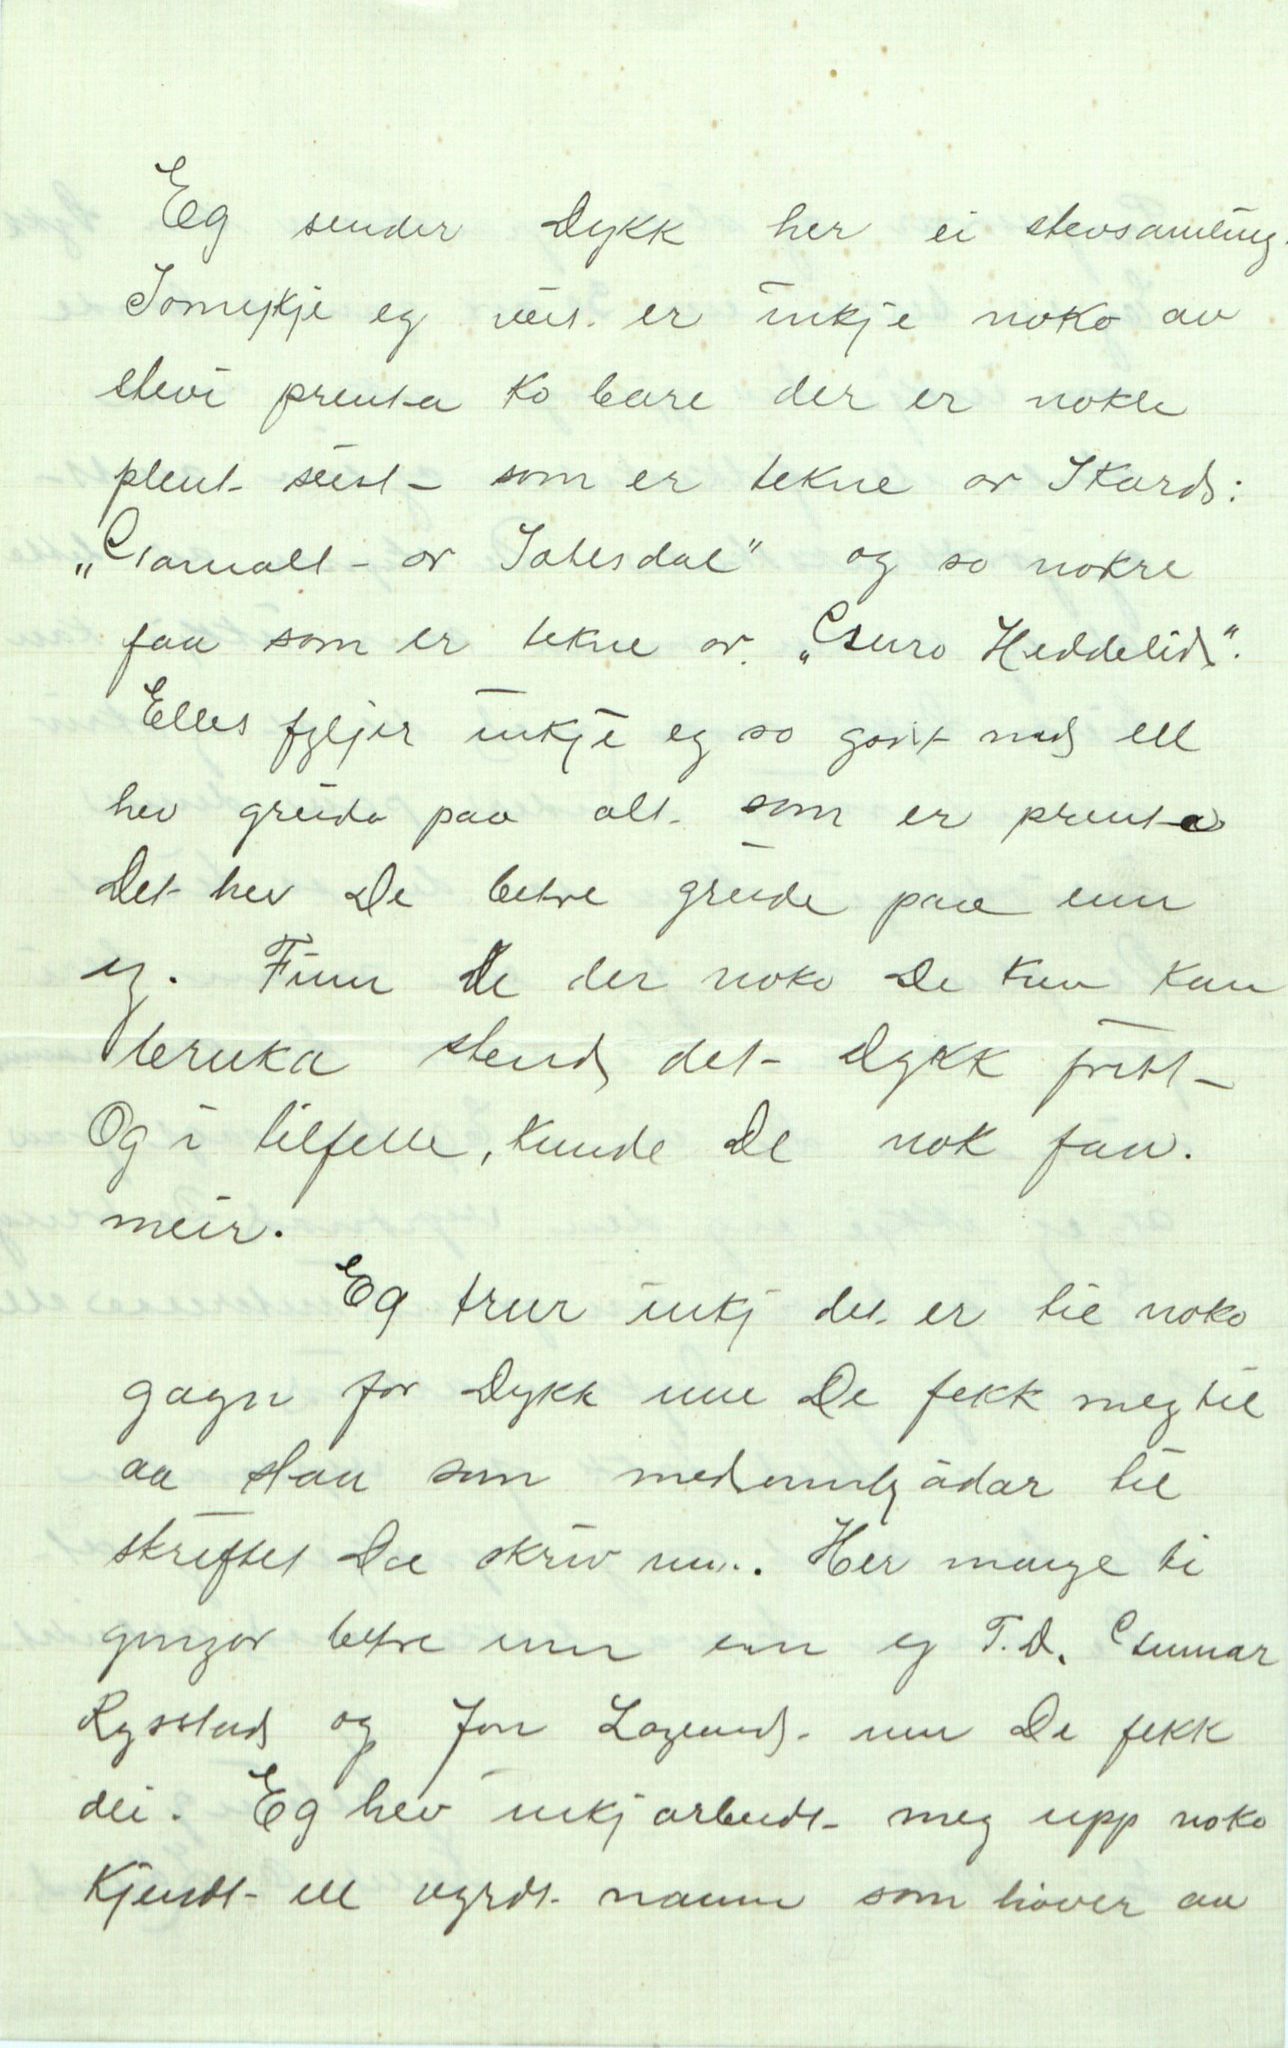 Eg sender Dykk her ei stevsamling.
Somykje eg veit er inkje noko av
stevi prenta ko bare der er nokle
plent sist som er tekne or Skards:
„Gamalt or Sætesdal" og so nokre
faa som er tekne or „Guro Heddelid".
Elles fyljer inkje eg so godt med ell
hev greida paa alt som er prenta
Det hev De betre greide paa enn
eg. Finn De der noko De kan kan
bruka stend det Dykk fritt
Og i tilfelle, kunde De nok faa
meir.
Eg trur inkj det er til noko
gagn for Dykk um De fekk meg til
aa staa som medarbeidar til
skriftet De skriv um. Her mange ti
gongor betre enn eg T.D. Gunnar
Rysstad og Jon Løyland um De fekk
dei. Eg hev inkj arbeidt meg upp noko
kjendt ell vyrdt namn som høver aa